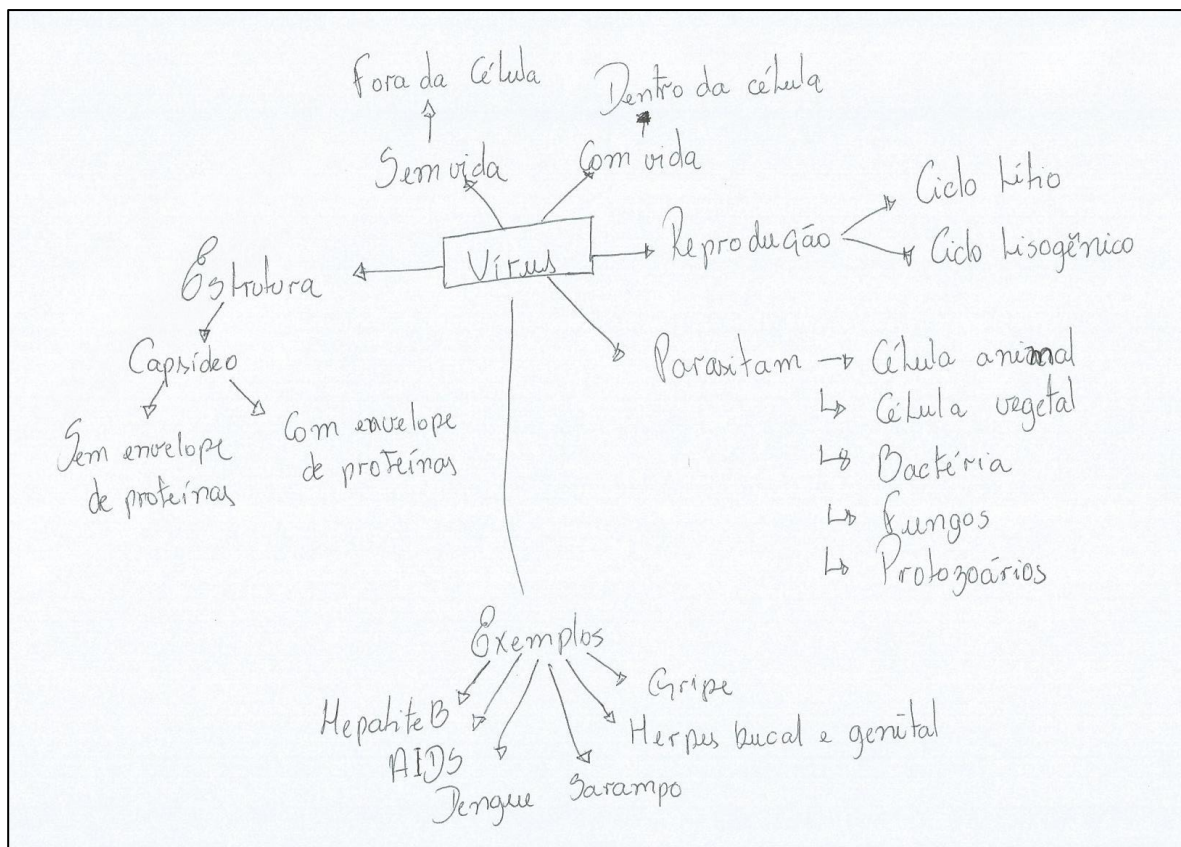 Fora da Célula
Dentro da célula
Sem vida
Com vida
Vírus
Reprodução
Ciclo Lítio
Ciclo Lisogênico
Estrutura
Capsídeo
Sem envelope
de proteínas
Com envelope
de proteínas
Parasitam
Célula animal
Célula vegetal
Bactéria
Fungos
Protozoários
Exemplos
Hepatite B
AIDS
Dengue
Sarampo
Herpes bucal e genital
Gripe